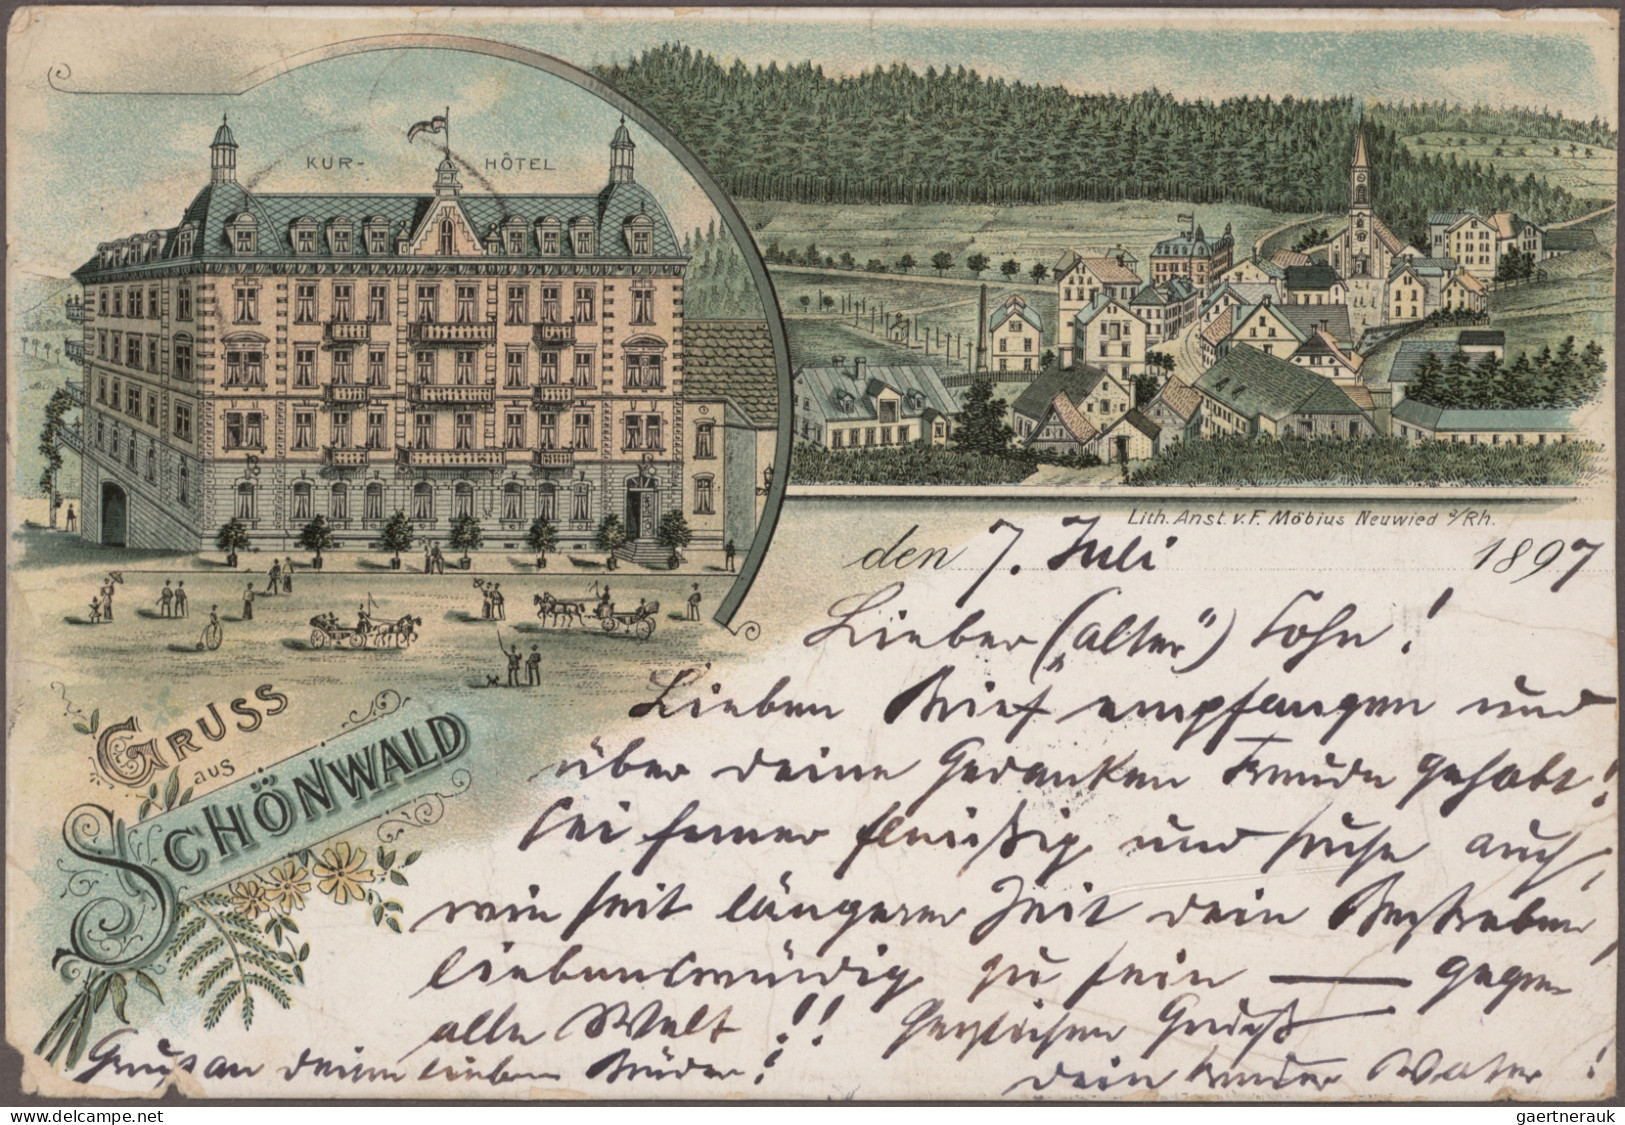 KUR- HÔTEL
GRUSS
aus
SCHÖNWALD
Lith. Anst. v. F. Möbius Neuwied a/Rh.
den 7. Juli 1897
Lieber („alter“) Sohn!
Lieben Brief empfangen und
über deine Gedanken Freude gehabt!
Sei ferner fleißig und suche auch,
wie seit längerer Zeit dein Bestreben,
liebenswürdig zu sein — gegen
alle Welt!!! Herzlichen Gruß
Gruß an deinen lieben Bruder!
dein Vater!
gaertnerauk